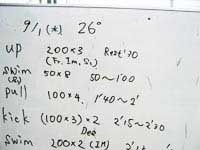 9/1 (木) 26°
up 200×3 Rest'30
(Fr. Im. S1)
Swim 50×8 50~1'00
(S1)
pull 100×4 1'40~2'
kick (100×3)×2 2'15~2'30
Des
Swim 200×2 (IM)